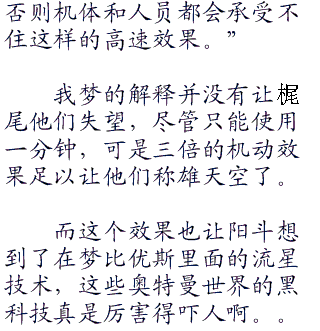 否则机体和人员都会承受不
住这样的高速效果。”
我梦的解释并没有让梶
尾他们失望，尽管只能使用
一分钟，可是三倍的机动效
果足以让他们称雄天空了。
而这个效果也让阳斗想
到了在梦比优斯里面的流星
技术，这些奥特曼世界的黑
科技真是厉害得吓人啊。。